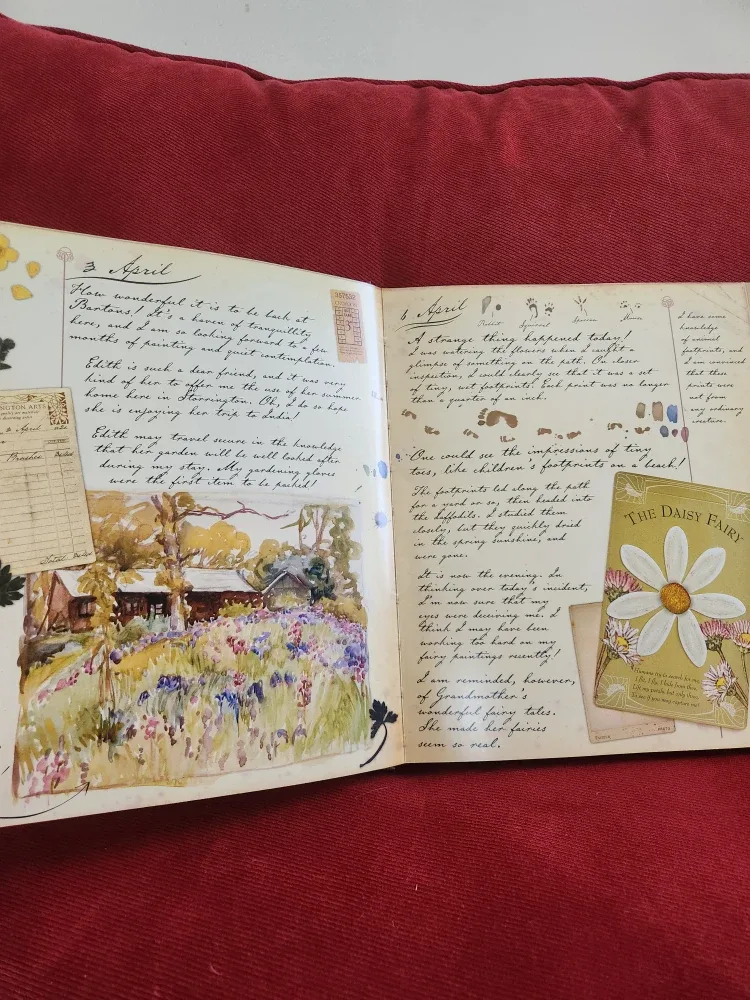 3 April
How wonderful it is to be back at
Bartons! It's a haven of tranquillity
here, and I am so looking forward to a few
months of painting and quiet contemplation.
Edith is such a dear friend, and it was very
kind of her to offer me the use of her summer
home here in Storrington. Oh, I do so hope
she is enjoying her trip to India!
Edith may travel secure in the knowledge
that her garden will be well looked after
during my stay. My gardening gloves
were the first item to be packed!
NGTON ARTS
April
Brushes
Total
6 April
Rabbit
Squirrel
Sparrow
Mouse
A strange thing happened today!
I was watering the flowers when I caught a
glimpse of something on the path. On closer
inspection, I could clearly see that it was a set
of tiny, wet footprints! Each print was no longer
than a quarter of an inch.
One could see the impressions of tiny
toes, like children's footprints on a beach!
The footprints led along the path
for a yard or so, then headed into
the daffodils. I studied them
closely, but they quickly dried
in the spring sunshine, and
were gone.
It is now the evening. In
thinking over today's incident,
I'm now sure that my
eyes were deceiving me. I
think I may have been
working too hard on my
fairy paintings recently!
I am reminded, however,
of Grandmother's
wonderful fairy tales.
She made her fairies
seem so real.
I have some
knowledge
of animal
footprints, and
I am convinced
that these
prints were
not from
any ordinary
creature.
THE DAISY FAIRY